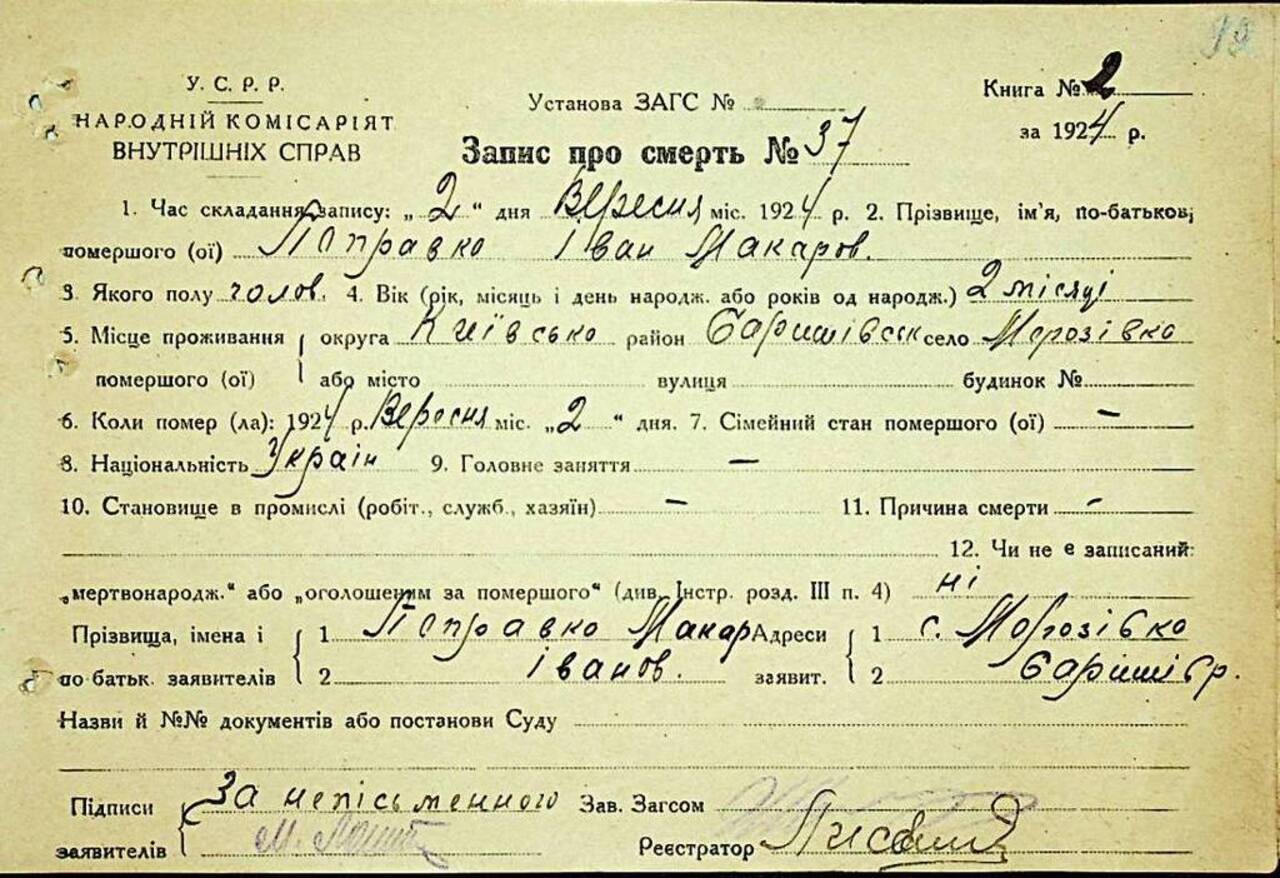 У. С. Р. Р.
НАРОДНІЙ КОМІСАРІЯТ
ВНУТРІШНІХ СПРАВ
Установа ЗАГС №
Книга № 2
за 1924 р.
Запис про смерть № 37
1. Час складання запису: „2“ дня Вересня міс. 1924 р. 2. Прізвище, ім'я, по-батькові
помершого (ої) Поправко Іван Макаров.
3. Якого полу чолов. 4. Вік (рік, місяць і день народж. або років од народж.) 2 місяці
5. Місце проживання округа Київсько район Баришівськ село Морозівко
помершого (ої) або місто вулиця будинок №
6. Коли помер (ла): 1924 р. Вересня міс. „2“ дня. 7. Сімейний стан помершого (ої) –
8. Національність Україін 9. Головне заняття –
10. Становище в промислі (робіт., служб., хазяїн) – 11. Причина смерти –
12. Чи не є записаний:
„мертвонародж.“ або „оголошеним за помершого“ (див. Інстр. розд. III п. 4) ні
Прізвища, імена і 1 Поправко Макар Адреси 1 с. Морозівко
по батьк. заявителів 2 Іванов. заявит. 2 Баришів р.
Назви й №№ документів або постанови Суду
Підписи За непісьменного Зав. Загсом
заявителів М. Реєстратор